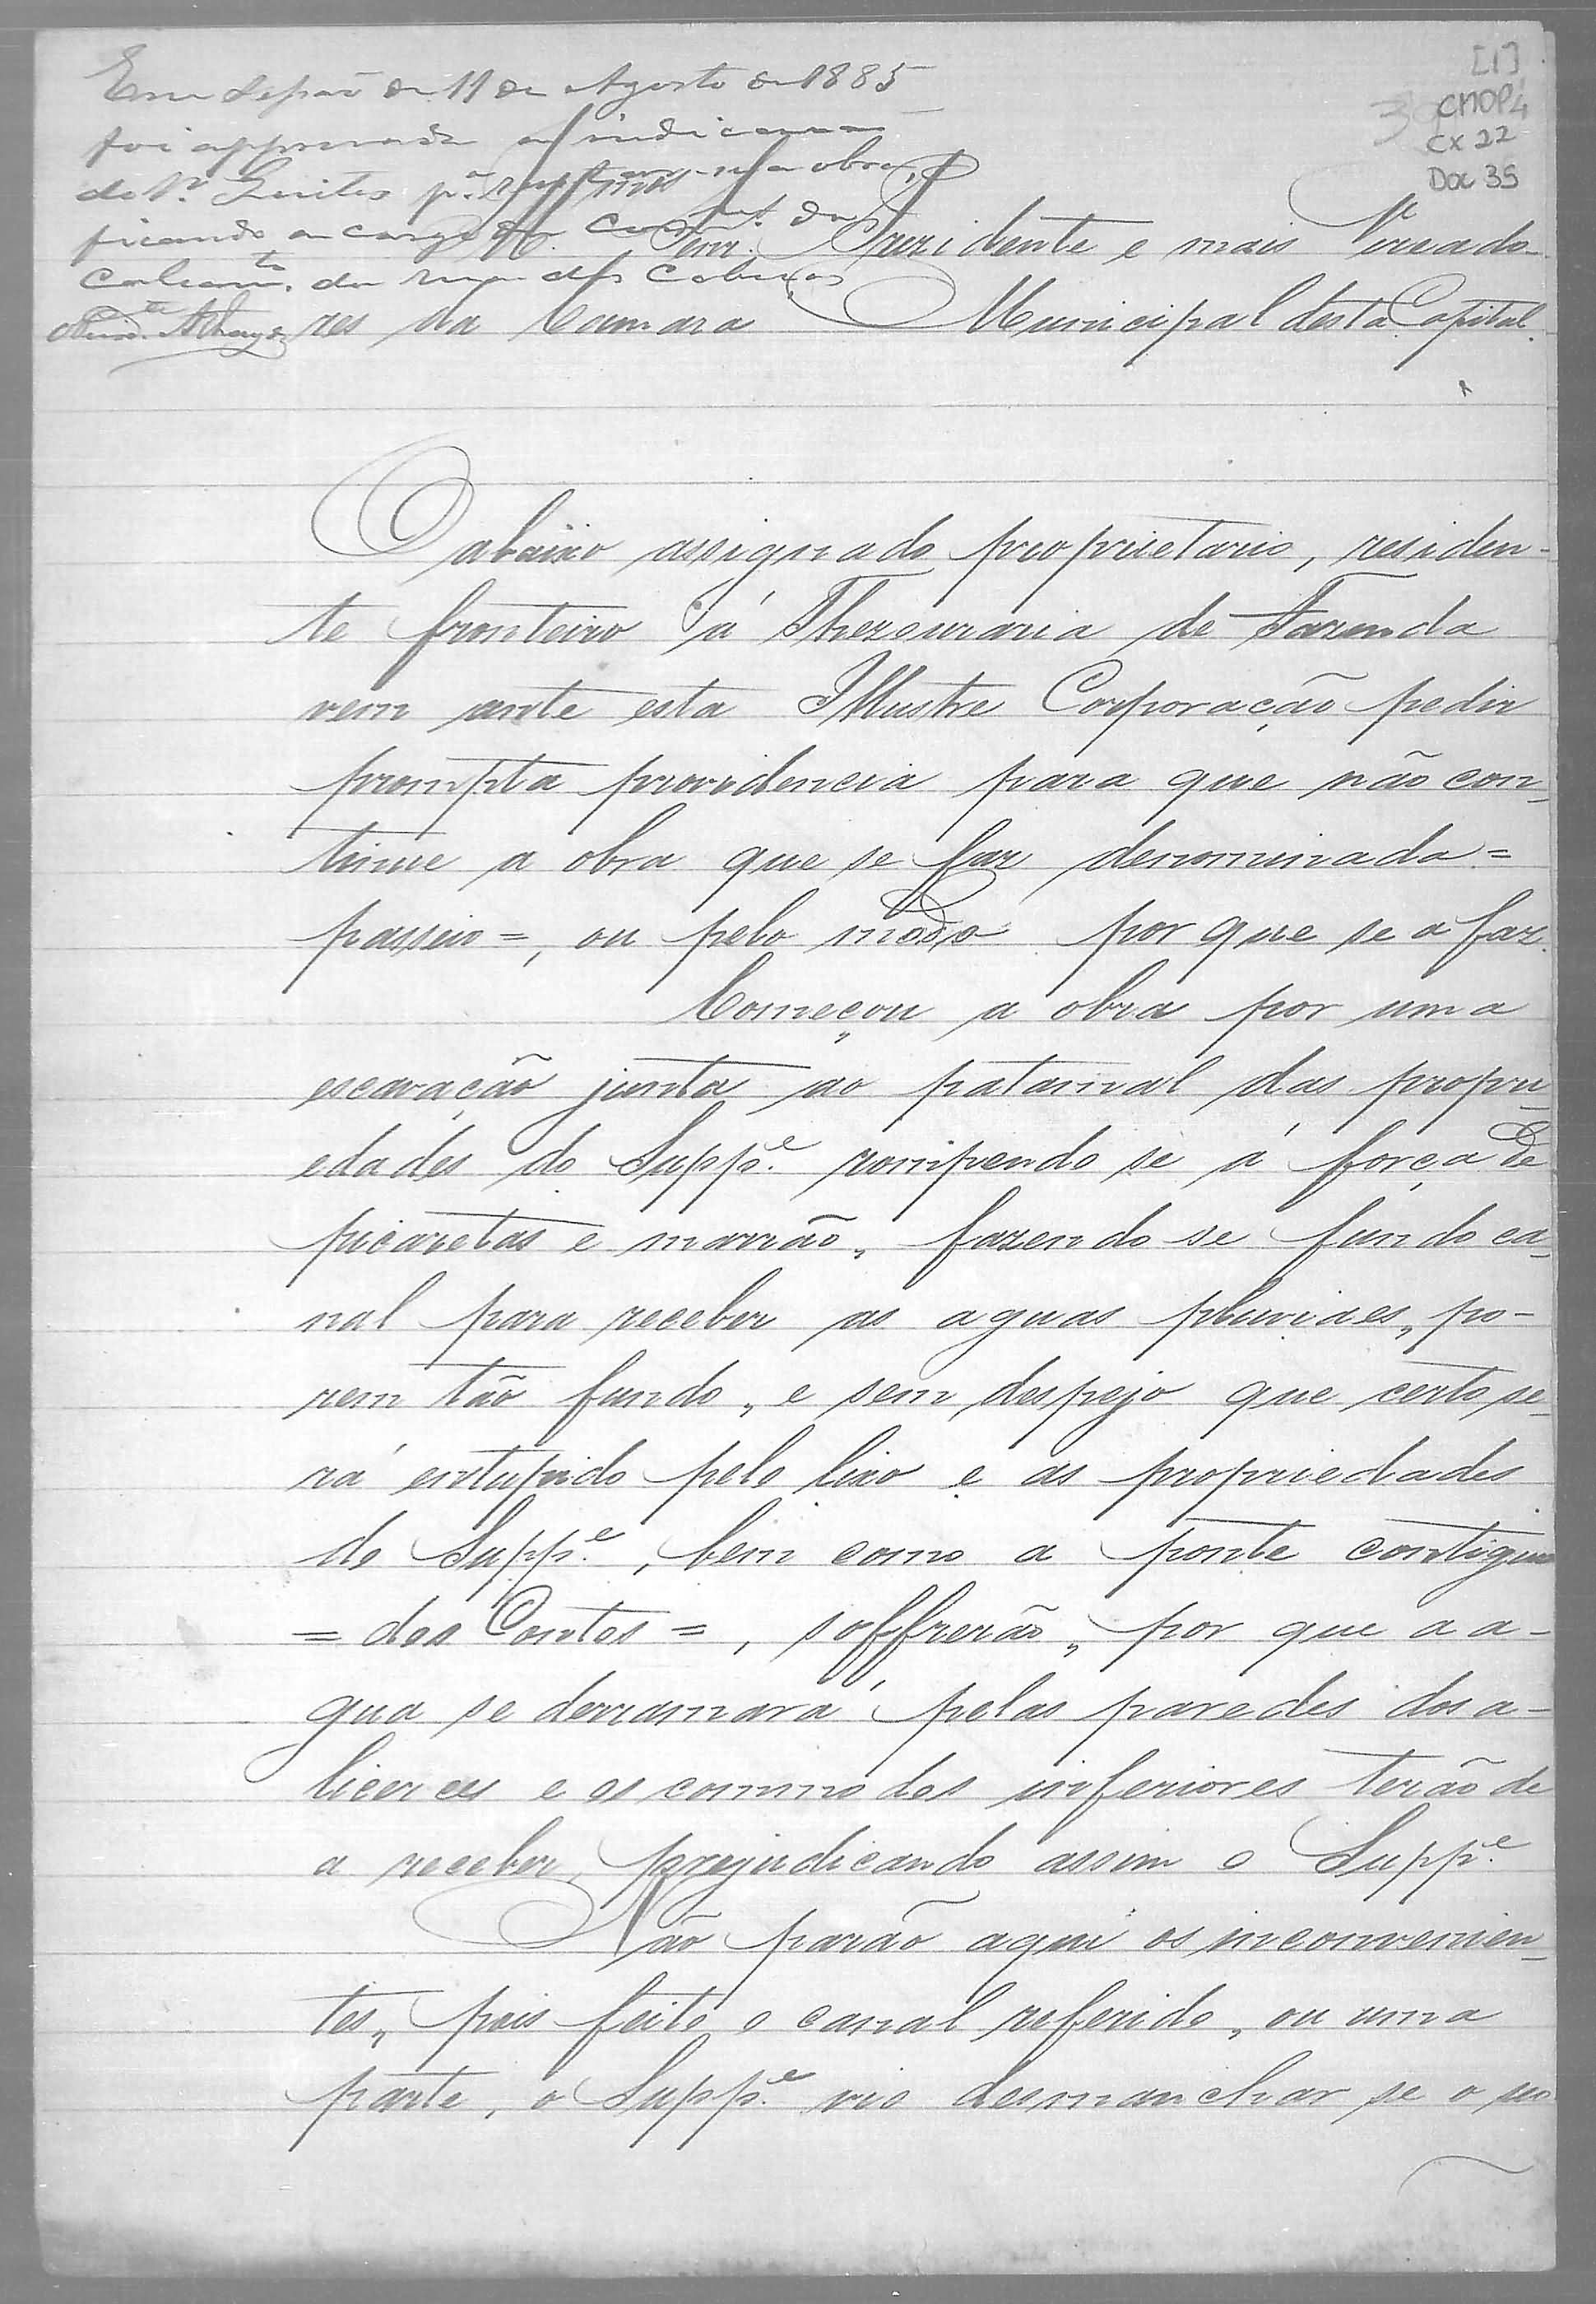 [1]
CMOP4
Cx 22
Doc 35
Em de 11 de Agosto de 1885
foi approvada a indicação
do Vr. p.ª a obra,
ficando a cargo da Com. do
Calçam.to da rua das Cabeças
Snr. Prezidente e mais Vereado-
res da Camara Municipal desta Capital.
O abaixo assignado proprietario, residen-
te fronteiro á Thezouraria de Fazenda
vem ante esta Illustre Corporação pedir
prompta providencia para que não con-
tinue a obra que se faz denominada =
passeio =, ou pelo modo por que se a faz.
Começou a obra por uma
escavação junta ao patamal das propri-
edades do Supp.e rompendo se á força de
picaretas e marrão, fazendo se fundo ca-
nal para receber as aguas pluviaes, po-
rem tão fundo, e sem despejo que certo se-
rá entupido pelo lixo e as propriedades
do Supp.e, bem como a ponte contigua
= dos Contos =, soffrerão, por que a a-
gua se derramará pelas paredes dos a-
licerces e os commodos inferiores terão de
a receber, prejudicando assim o Supp.e
Não parão aqui os inconvenien-
tes, pois feito o canal referido, ou uma
parte, o Supp.e vio desmanchar se o seo